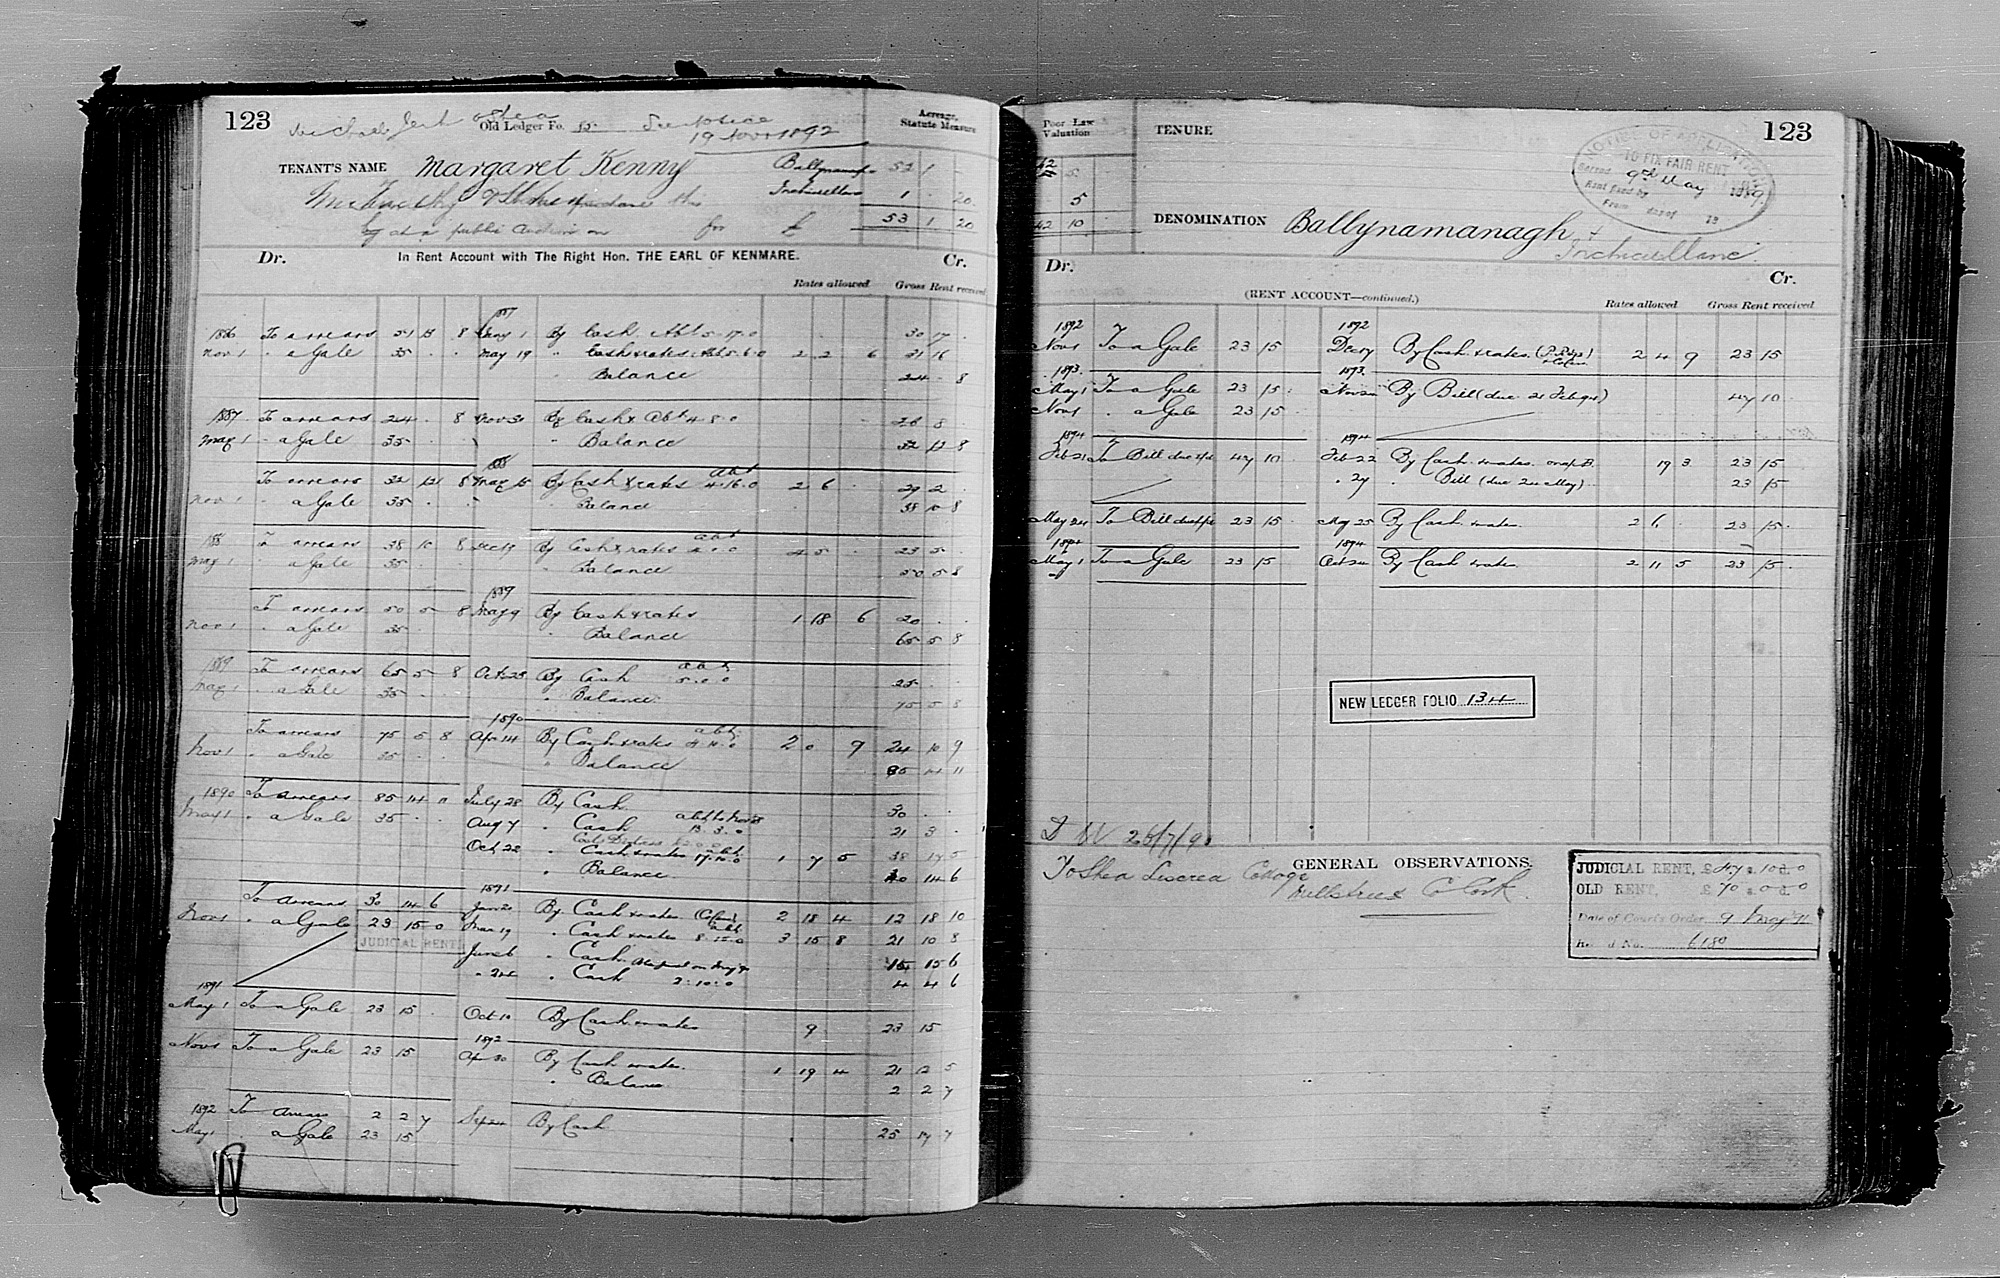 123
Michael Jerh OShea Old Ledger Fo. 55 See notice
19 Novr 1892
Acreage, Statute Measure
TENANT'S NAME Margaret Kenny
Ballynama 52 1
Inchicullane 1 . 20
53 1 20
Timothy
at a public Auction on for £
Dr. In Rent Account with The Right Hon. THE EARL OF KENMARE. Cr.
Rates allowed Gross Rent received
1887
1886 To arrears 51 13 8 Jany 1 By Cash Abt 5.17.0 30 17
Nov 1 " a Gale 35 . . May 19 " Cash & rates 2 2 6 31 16
" Balance 24 . 8
1887 To arrears 24 . 8 Nov By Cash & Abt 4.8.0 26 8
May 1 " a Gale 35 " Balance 32 12 8
1888
To arrears 32 12 8 May 15 By Cash & rates abt 4.16.0 2 6 . 29 2 .
Nov 1 " a Gale 35 . . " Balance 38 10 8
1888 To arrears 38 10 8 Dec 19 By Cash & rates abt 4 5 . 23 5 .
May 1 " a Gale 35 " Balance 50 5 8
1889
To arrears 50 5 8 May 9 By Cash & rates 1 18 6 20 . .
Nov 1 " a Gale 35 " Balance 65 5 8
1889 To arrears 65 5 8 Oct 23 By Cash abt 5.0.0 25 . .
May 1 " a Gale 35 . . " Balance 75 5 8
1890
To arrears 75 5 8 Apr 14 By Cash & rates abt 2 0 9 24 10 9
Nov 1 " a Gale 35 . . " Balance 85 14 11
1890 To arrears 85 14 11 July 28 By Cash 30 .
May 1 " a Gale 35 . . Aug 7 " Cash 13.3.0 21 3 .
Oct 22 " Cash & rates abt 17.10.0 1 7 5 38 17 5
" Balance 30 14 6
1891
To arrears 30 14 6 Jan 20 By Cash & rates 2 18 4 12 18 10
Nov 1 " a Gale 23 15 0 Mar 19 " Cash & rates abt 3 15 8 21 10 8
JUDICIAL RENT June 6 " Cash 15 15 6
" 24 " Cash 2:10:0 4 4 6
1891
May 1 To a Gale 23 15 . Oct 10 By Cash & rates 9 23 15
1892
Nov 1 To a Gale 23 15 Apr 30 By Cash & rates 1 19 4 21 12 5
" Balance 2 2 7
1892 To arrears 2 2 7 Sep 24 By Cash 25 17 7
May 1 a Gale 23 15
Poor Law Valuation
TENURE
123
NOTICE OF APPLICATION
TO FIX FAIR RENT
Served 9th May 1889
Rent fixed by
From day of 18
42 5
5
42 10
DENOMINATION Ballynamanagh &
Inchicullane
Dr. (RENT ACCOUNT—continued.) Cr.
Rates allowed Gross Rent received
1892 1892
Nov 1 To a Gale 23 15 Dec 17 By Cash & rates 2 4 9 23 15
1893. 1893.
May 1 To a Gale 23 15 . Nov 20 By Bill (due 21 Feb 94) 47 10 .
Nov 1 " a Gale 23 15 .
1894 1894
Feb 21 To Bill due 47 10 Feb 22 By Cash & rates 19 3 . 23 15
" 27 " Bill (due 24 May) 23 15
May 24 To Bill due 23 15 . May 25 By Cash & rates 2 6 . 23 15 .
1894 1894
May 1 To a Gale 23 15 Oct 24 By Cash & rates 2 11 5 23 15 .
NEW LEDGER FOLIO 134
GENERAL OBSERVATIONS.
T OShea Liscrea Cottage
Millstreet Co Cork.
JUDICIAL RENT, £47 s.10 d.0
OLD RENT, £70 s.0 d.0
Date of Court's Order, 9 May 91
Record No. 6180